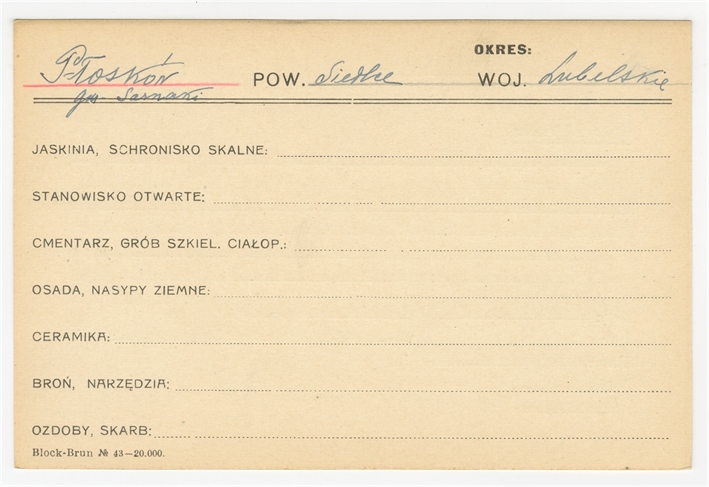 OKRES:
Płosków POW. Siedlce WOJ. Lubelskie
gm. Sarnaki
JASKINIA, SCHRONISKO SKALNE:
STANOWISKO OTWARTE:
CMENTARZ, GRÓB SZKIEL. CIAŁOP.:
OSADA, NASYPY ZIEMNE:
CERAMIKA:
BROŃ, NARZĘDZIA:
OZDOBY, SKARB:
Block-Brun № 43—20.000.